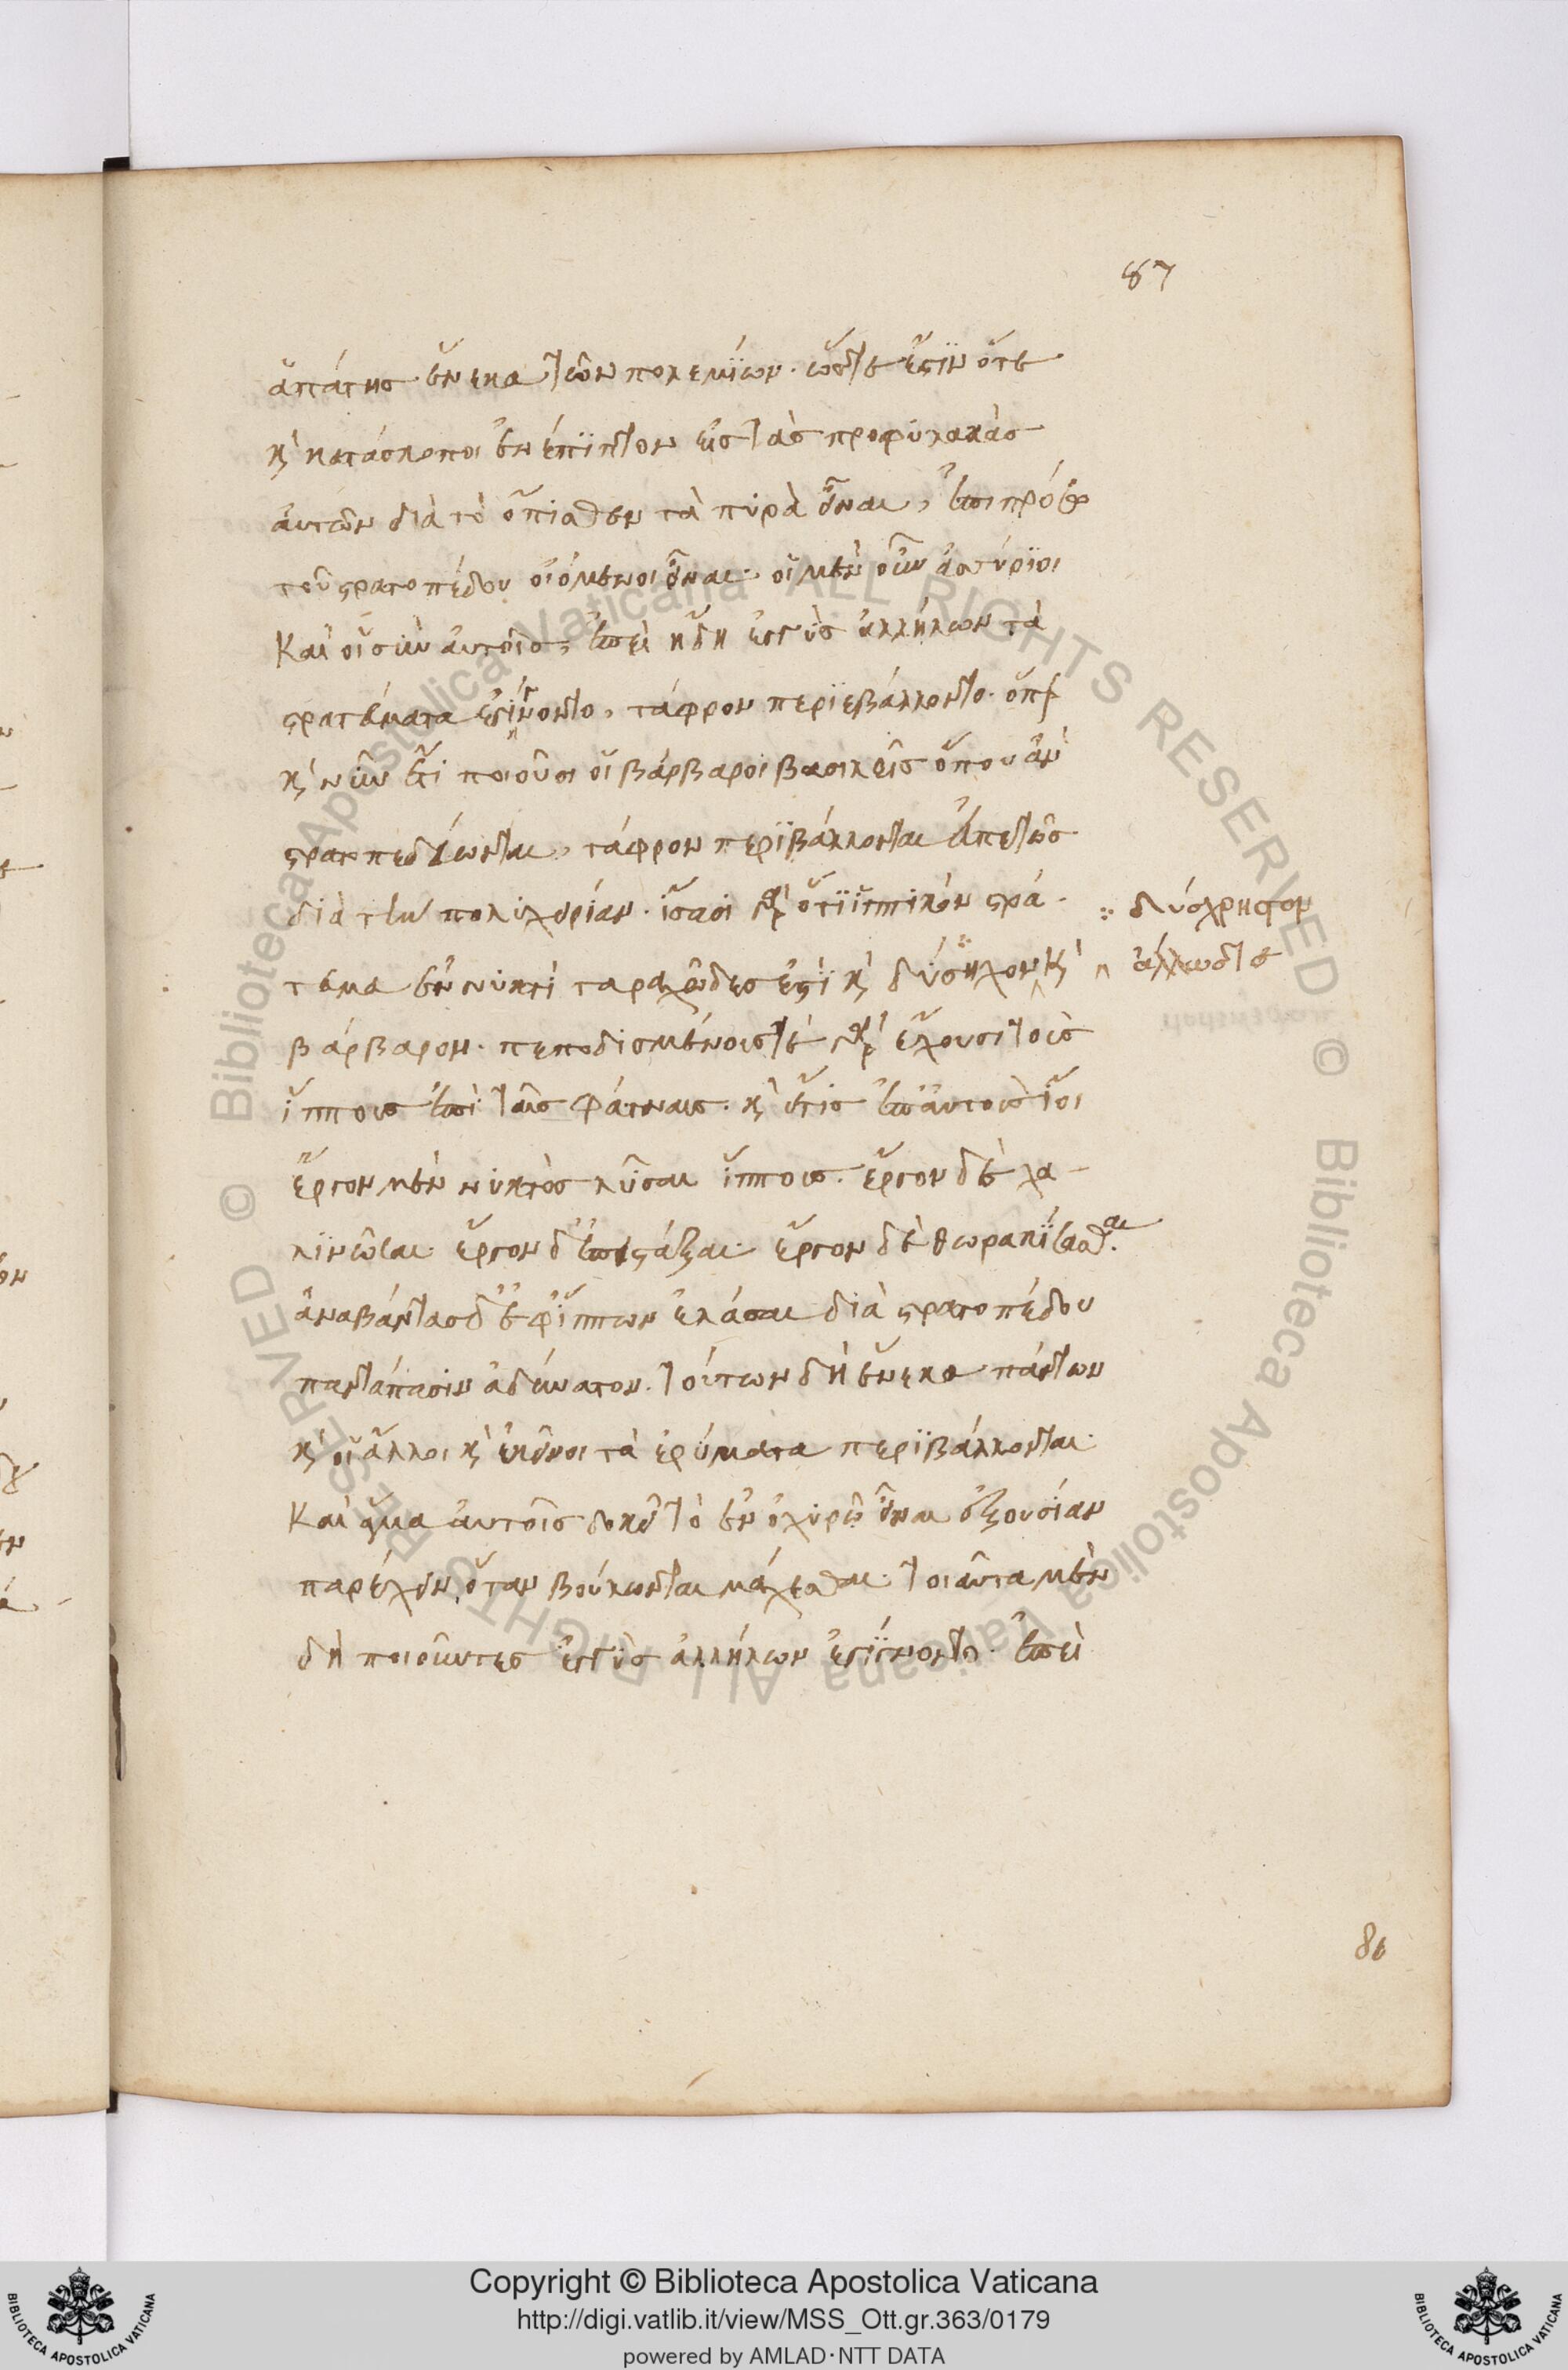 87
ἀπάτης ἕνεκα τῶν πολεμίων. ὥστ᾽ ἔστιν ὅτε
καὶ κατάσκοποι ἐνέπιπτον εἰς τὰς προφυλακὰς
αὐτῶν διὰ τὸ ὄπισθεν τὰ πυρὰ εἶναι, ἔτι πρόσω
τοῦ στρατοπέδου οἰόμενοι εἶναι. οἱ μὲν οὖν ἀσσύριοι
Καὶ οἱ σὺν αὐτοῖς, ἐπεὶ ἤδη ἐγγὺς ἀλλήλων τὰ
στρατεύματα ἐγίγνοντο, τάφρον περιεβάλλοντο. ὅπερ
καὶ νῦν ἔτι ποιοῦσι οἱ βάρβαροι βασιλεῖς ὅπου ἂν
στρατοπεδεύωνται, τάφρον περιβάλλονται εὐπετῶς
διὰ τὴν πολυχειρίαν. ἴσασι γὰρ ὅτι ἱππικὸν στρά-
τευμα ἐν νυκτὶ ταραχῶδες ἐστὶ καὶ δύσηχον καὶ
βάρβαρον. πεποδισμένους τὲ γὰρ ἔχουσι τοὺς
ἵππους ἐπὶ ταῖς φάτναις. καὶ εἴ τις ἐπ᾽ αὐτοὺς ἴοι
ἔργον μὲν νυκτὸς λῦσαι ἵππους. ἔργον δὲ χα-
λινῶσαι. ἔργον δ᾽ ἐπιστάξαι. ἔργον δὲ θωρακίσασθαι.
ἀναβάντας δ᾽ ἐφ᾽ ἵππων ἐλάσαι διὰ στρατοπέδου
παντάπασιν ἀδύνατον. τούτων δὴ ἕνεκα πάντων
καὶ οἱ ἄλλοι καὶ ἐκεῖνοι τὰ ἐρύματα περιβάλλονται.
Καὶ ἅμα αὐτοῖς δοκεῖ τὸ ἐν ὀχυρῷ εἶναι ἐξουσίαν
παρέχειν, ὅταν βούλωνται μάχεσθαι. τοιαῦτα μὲν
δὴ ποιοῦντες ἐγγὺς ἀλλήλων ἐγίγνοντο. ἐπεὶ
δύσχρηστον
ἄλλως τε
86
Copyright © Biblioteca Apostolica Vaticana
http://digi.vatlib.it/view/MSS_Ott.gr.363/0179
powered by AMLAD·NTT DATA
BIBLIOTECA APOSTOLICA VATICANA
BIBLIOTECA APOSTOLICA VATICANA
© Biblioteca Apostolica Vaticana ALL RIGHTS RESERVED © Biblioteca Apostolica Vaticana ALL RIGHTS RESERVED